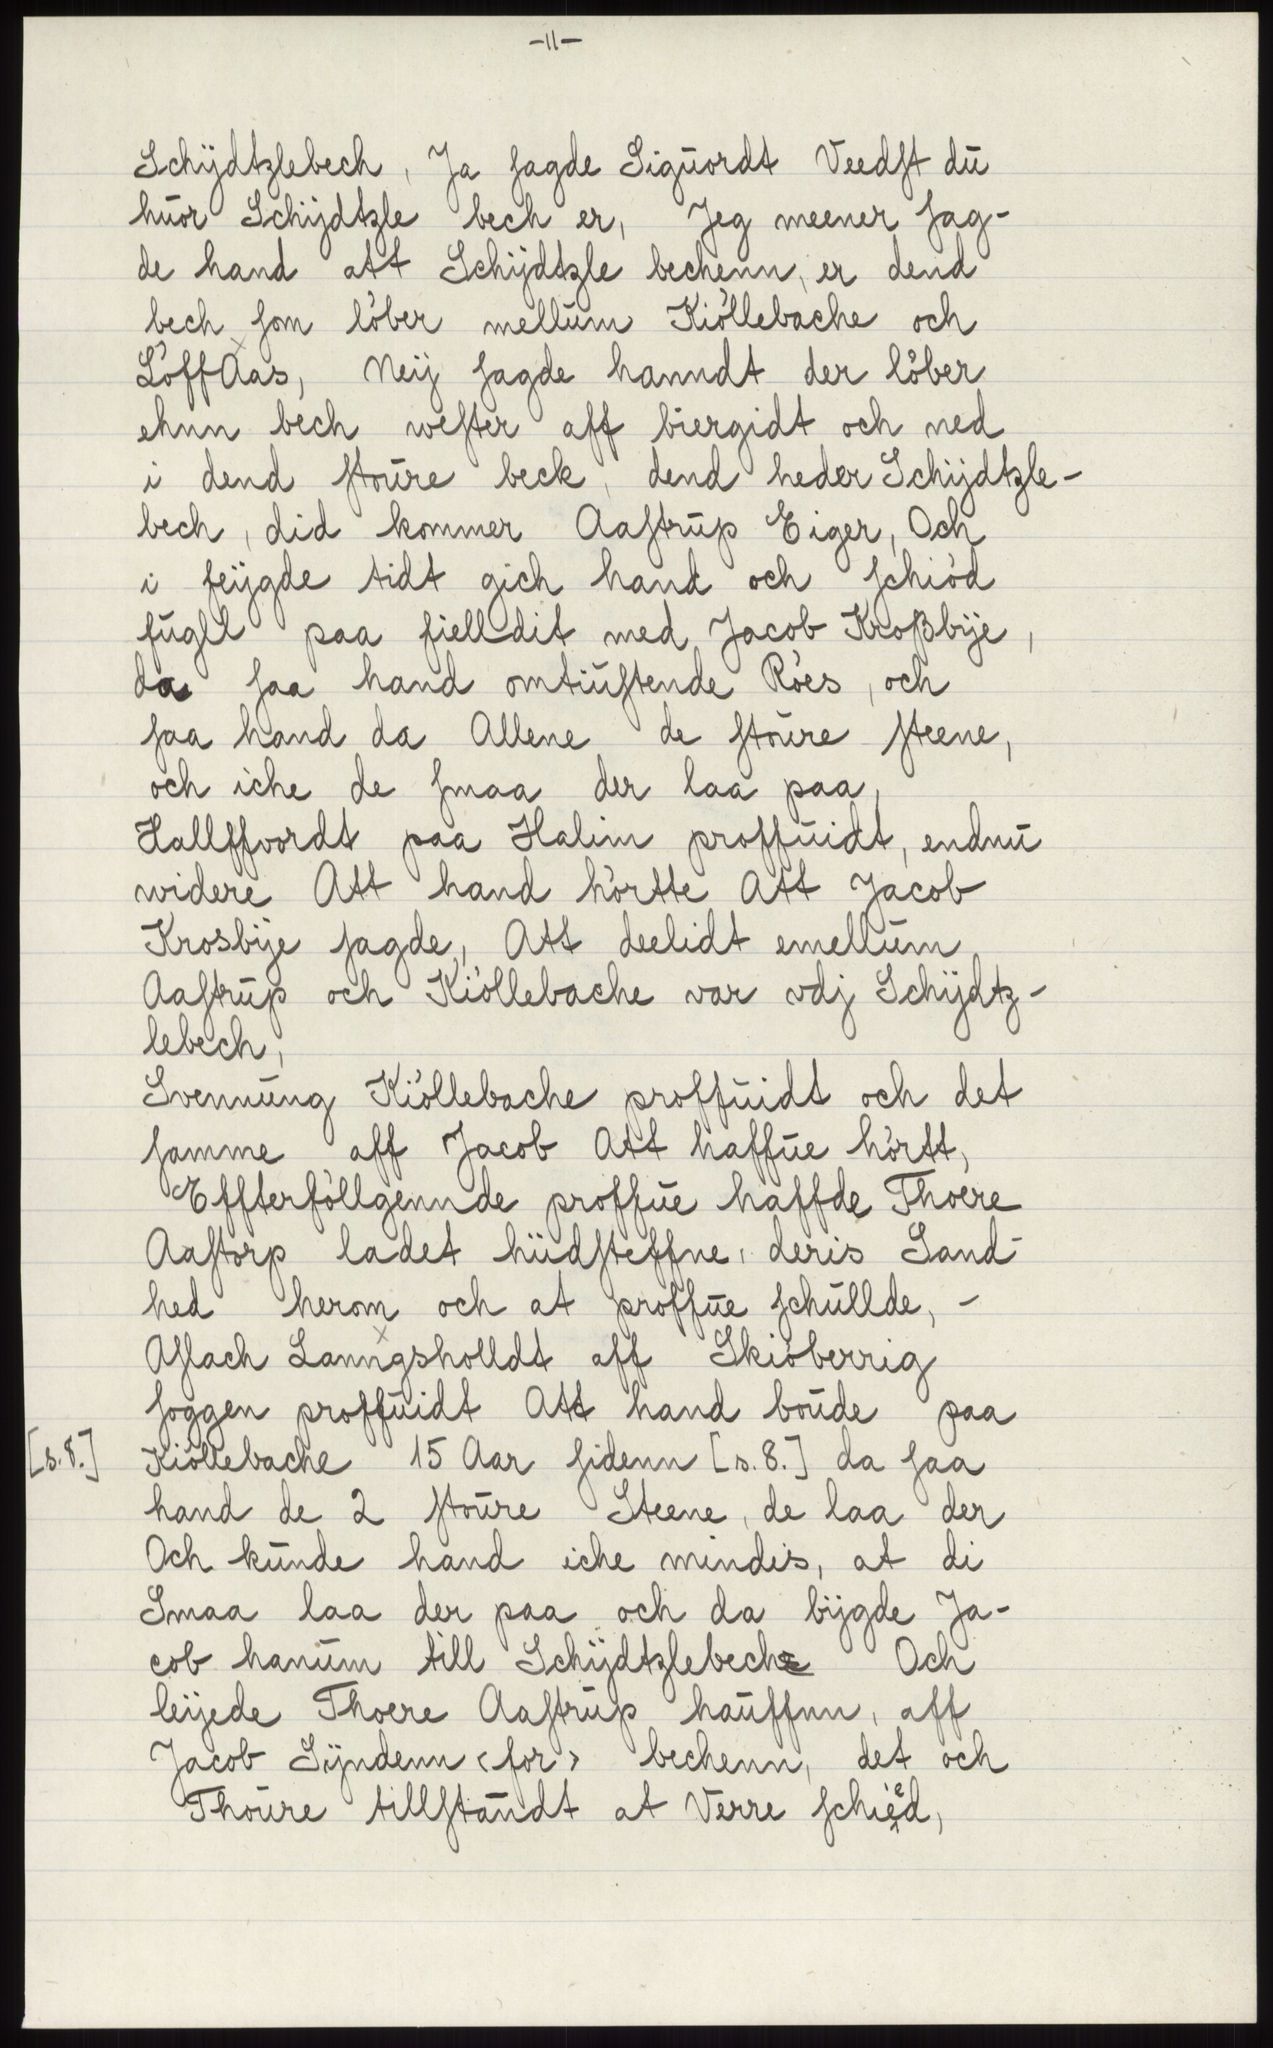 -11-
Schÿdtzlebech, Ja sagde Siguordt Veedst du
huor Schijdtzle bech er, Jeg meener sag-
de hand att Schijdtzle bechenn, er dend
bech som löber mellum Kiöllebache och
LöffAas, Neij sagde hanndt der löber
ehnn bech wester aff biergidt och ned
i dend stoure beck, dend heder Schijdtzle-
bech, did kommer Aastrup Eiger, Och
i feÿgde tidt gich hand och schiöd
fugll paa fielldit med Jacob Kroßbÿe,
da saa hand omtiustende Röes, och
saa hand da Allene de stoure steene,
och iche de smaa der laa paa,
Hallffvordt paa Halim proffuidt, endnu
widere Att hand hörtte Att Jacob
Krosbije sagde, Att deelidt emellum
Aastrup och Kiöllebache var vdj Schÿdtz-
lebech,
Svennung Kiöllebache proffuidt och det
samme aff Jacob Att haffue hörtt,
Effterföllgennde proffue haffde Thoere
Aastorp ladet hüdsteffne, deris Sand-
hed herom och at proffue schullde, -
Aslach Lanngsholldt aff Skiöberrig
soggen proffuidt Att hand boude paa
[s.8.] Kiöllebache 15 Aar sidenn [s.8.] da saa
hand de 2 stoure Steene, de laa der
Och kunde hand iche mindis, at di
Smaa laa der paa och da bÿgde Ja-
cob hanum till Schÿdtzlebeche Och
leÿede Thoere Aastrup hauffnn, aff
Jacob Sÿndenn <for> bechenn, det och
Thoure tillstandt at Verre schiëd,